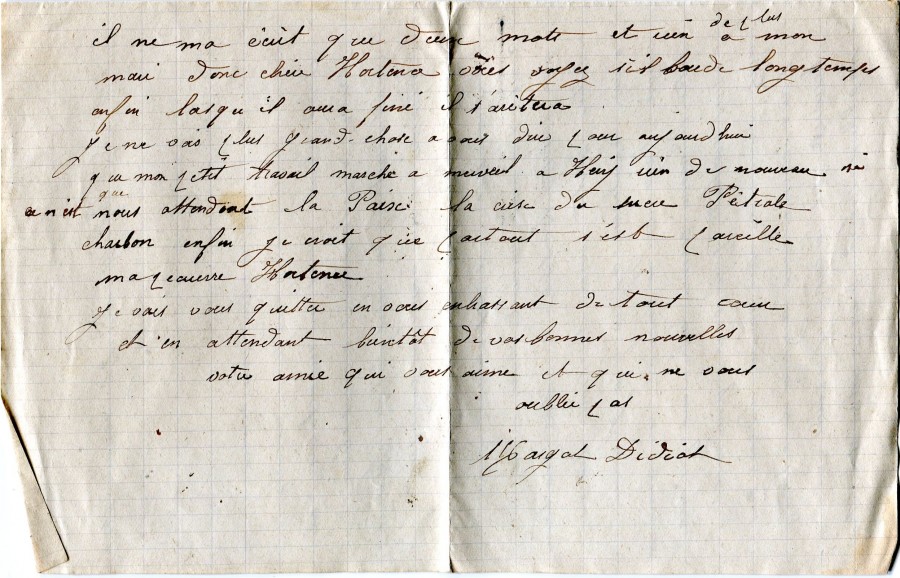 il ne ma écrit que deux mots et rien de plus a mon
mari donc chère Hortence vous voyez s'il boude longtemps
enfin lorsqu il aura finé il s'arêtera
Je ne vois plus grand-chose a vous dire pour aujourdhui
que mon petit travail marche a merveil a Heiy rien de nouveau si
ce n'est que nous attendont la Paix la crise du sucre Pétrole
charbon enfin je croit que partout s'est pareille
ma pauvre Hortence
Je vais vous quitter en vous enbrassant de tout cœur
et en attendant bientôt de vos bonnes nouvelles
votre amie qui vous aime et qui ne vous
oublie pas
Margot Didiot